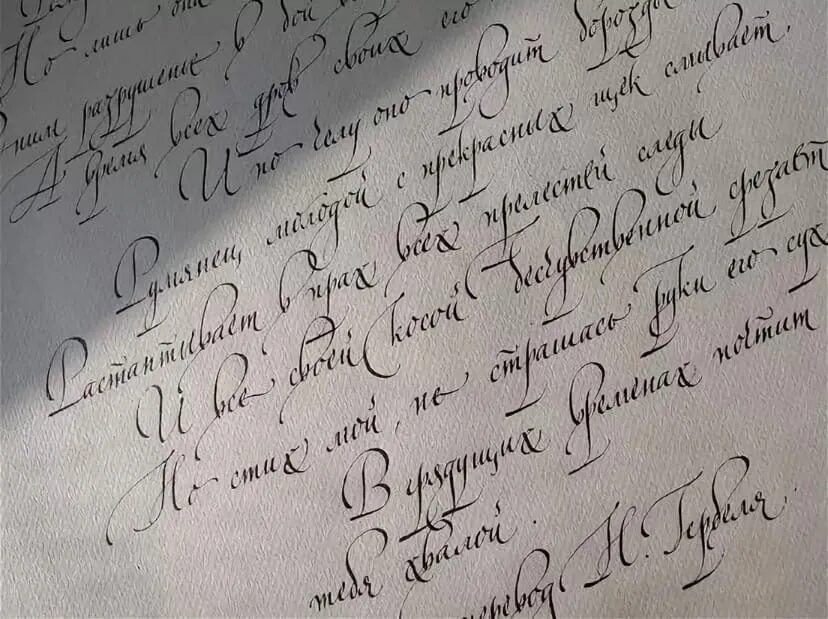 Но лишь они
ним разрушенье в бой
А время всех дров своих его
И по челу оно проводит борозды
Румянец молодой с прекрасных щёк смывает,
Растаптывает в прах всех прелестей следы
И все своей косой бесчувственной срезает
Но стих мой, не страшась руки его сух
В грядущих временах почтит
тебя хвалой.
перевод Н. Гербеля.